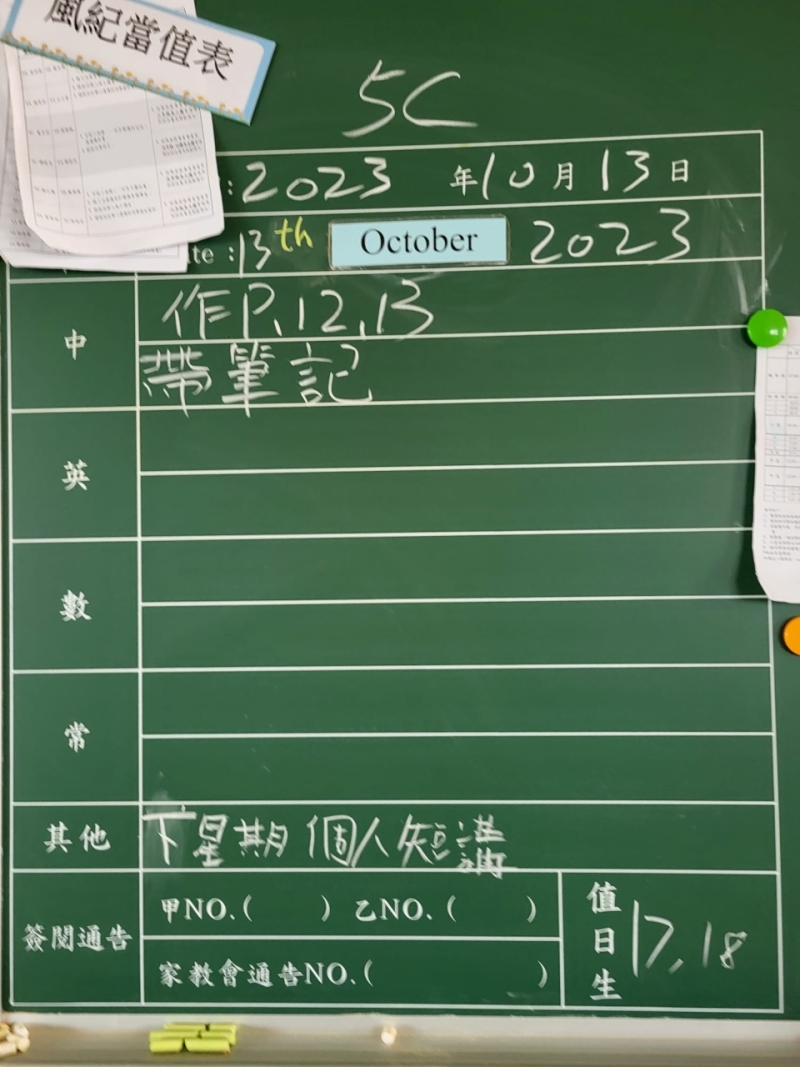 風紀當值表
5C
:2023 年10月13日
te :13th October 2023
中
作P.12,13
帶筆記
英
數
常
其他 下星期個人短講
簽閱通告
甲NO.( ) 乙NO.( )
家教會通告NO.( )
值日生 17,18